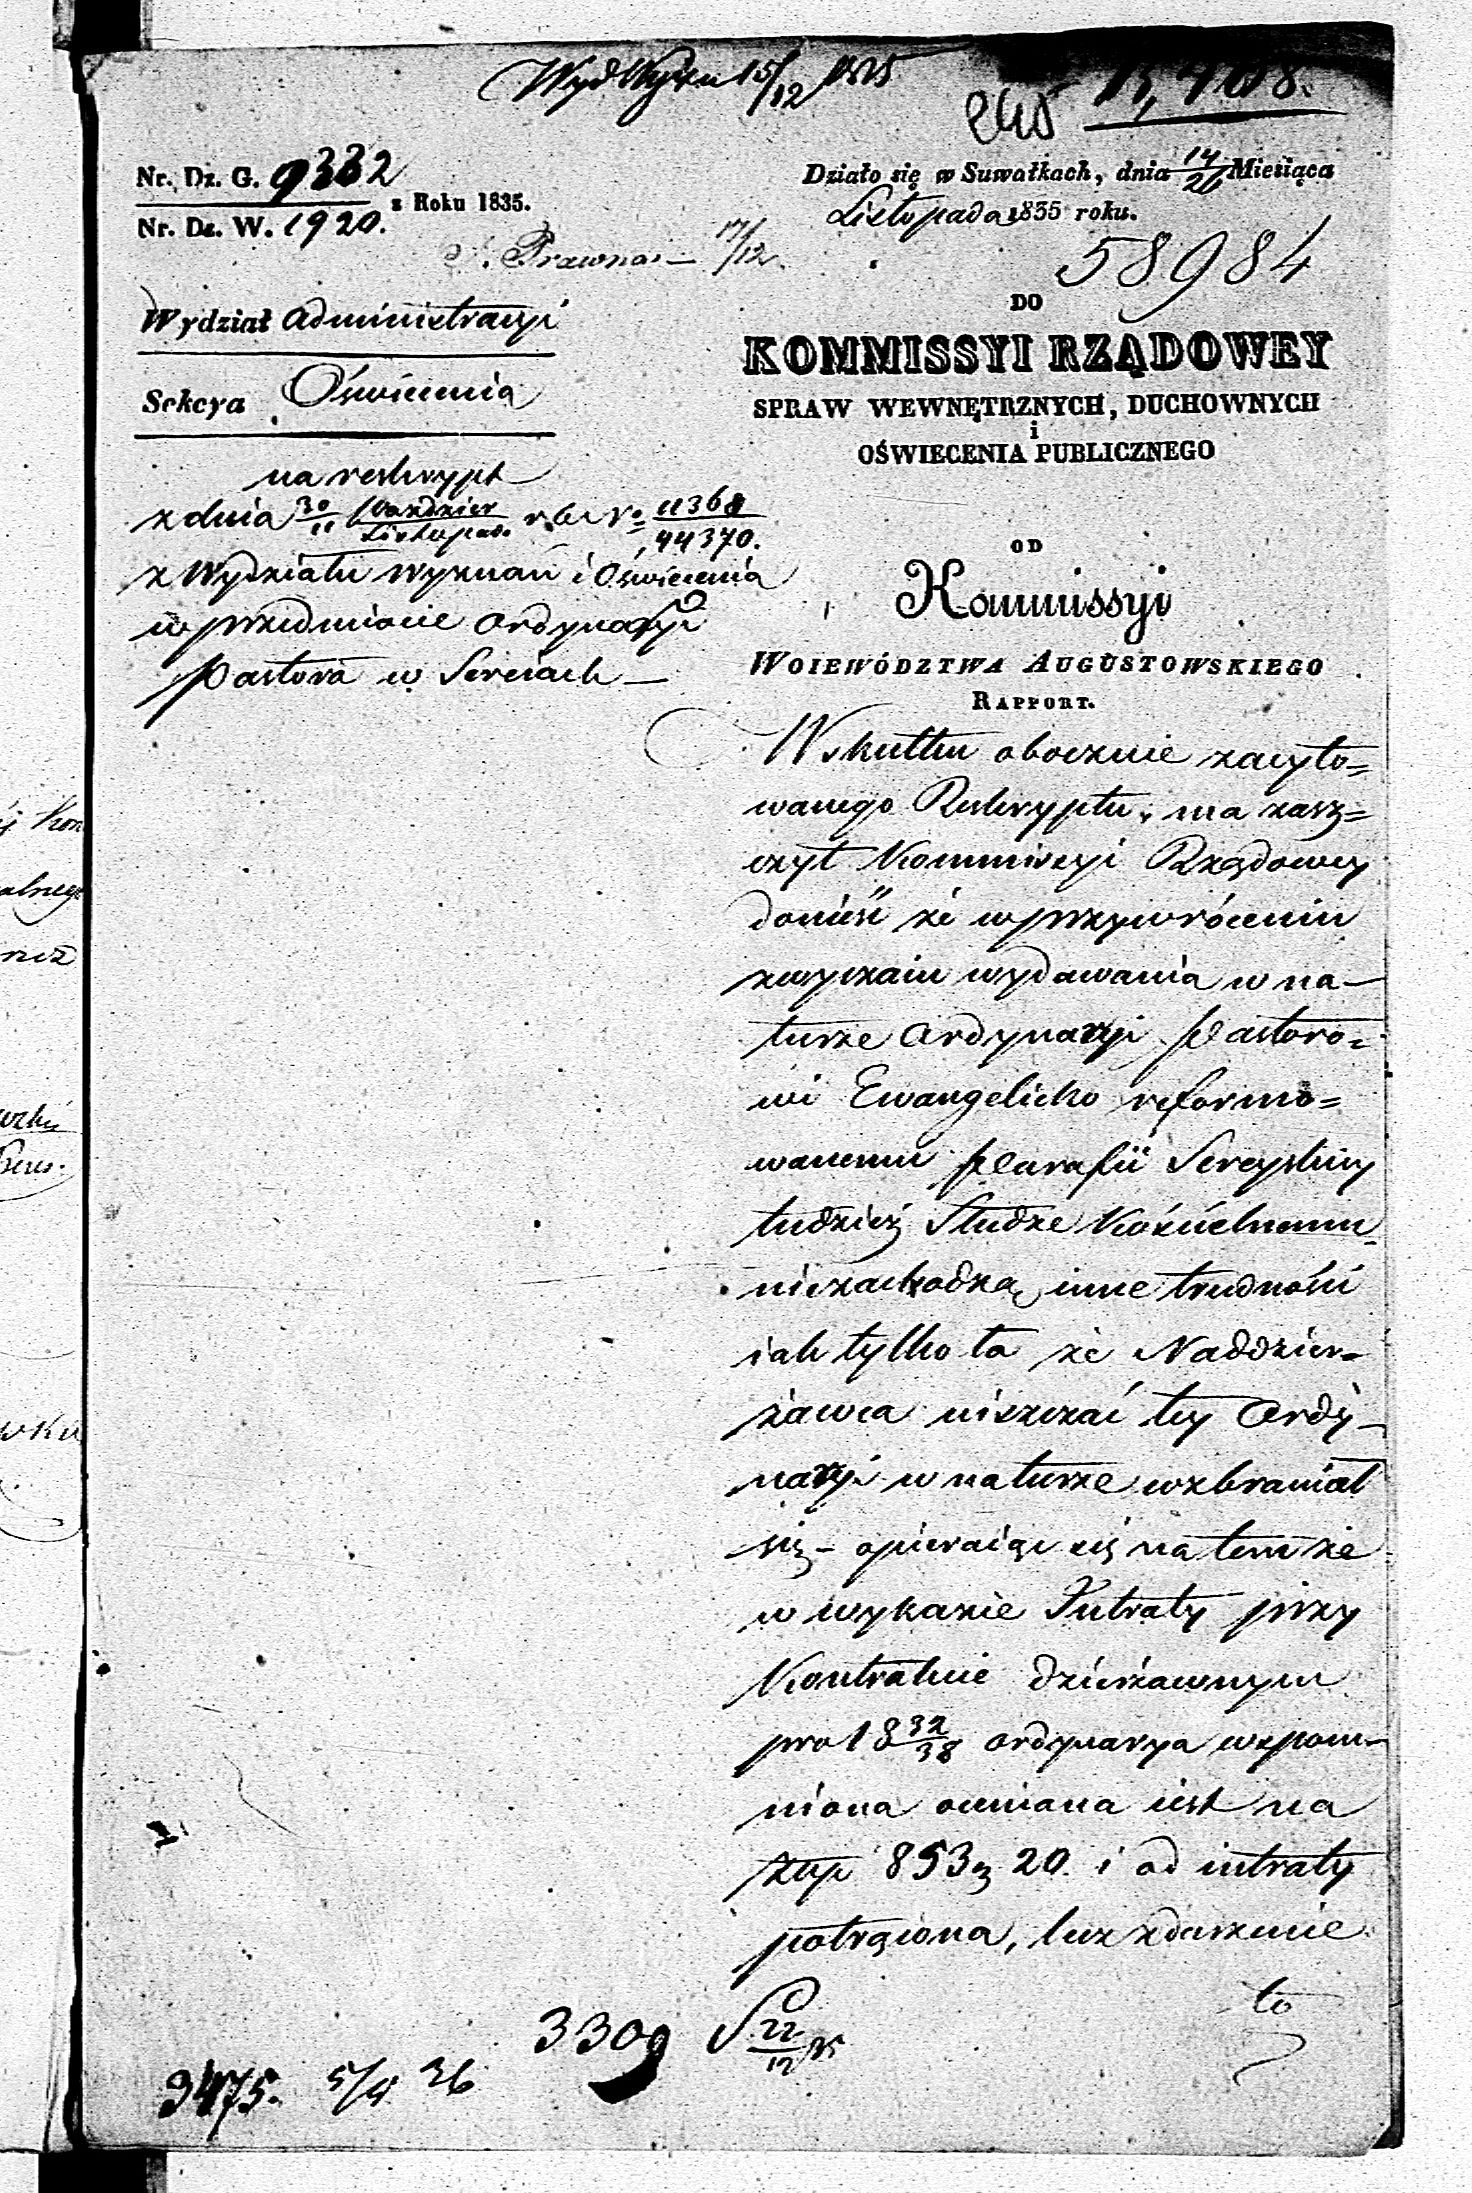 Wyd Wyzn 15/12 1835
13,408.
Nr. Dz. G. 9332
Nr. Dz. W. 1920.
z Roku 1835.
Prawna – 17/12.
Działo się w Suwałkach, dnia 14/26 Miesiąca
Listopada 1835 roku.
58984
Wydział Administracyi
Sekcya Oświecenia
na reskrypt
z dnia 30/11 Paździer/Listopad. r. b. N° 11368/44370.
z Wydziału Wyznań i Oświecenia
w przedmiocie Ordynaryi
Pastora w Sereiach –
DO
KOMMISSYI RZĄDOWEY
SPRAW WEWNĘTRZNYCH, DUCHOWNYCH
i
OŚWIECENIA PUBLICZNEGO
OD
Kommissyi
WOIEWÓDZTWA AUGUSTOWSKIEGO
RAPPORT.
W skutku obocznie zacyto=
wanego Reskryptu, ma zasz=
czyt Kommissyi Rządowey
donieść że w przywróceniu
zwyczaiu wydawania w na–
turze Ordynaryi Pastoro=
wi Ewangelicko reformo=
wanemu Parafii Sereyskiey
tudzież Słudze Kościelnemu
niezachodzą inne trudności
iak tylko ta że Naddzier=
żawca uiszczać tey Ordy–
naryi w naturze wzbraniał
się – opieraiąc się na tem że
w wykazie Intraty przy
Kontrakcie dzierżawnym
pro 18 32/38 ordynarya wspom–
niona oceniona iest na
Złp 853 g 20. i od intraty
potrącona, lecz zdarzenie
to
3309
22/12 35
3475. 5/4 36